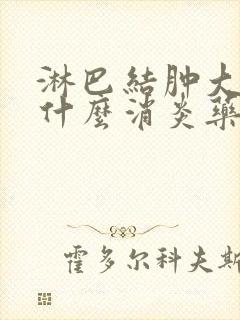 淋巴結肿大
什麼消炎藥
霍多尔科夫斯